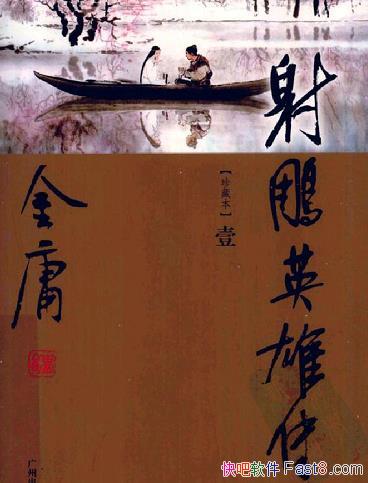 射鵰英雄传
【珍藏本】
壹
金庸
广州出
快吧软件 Fast8.com